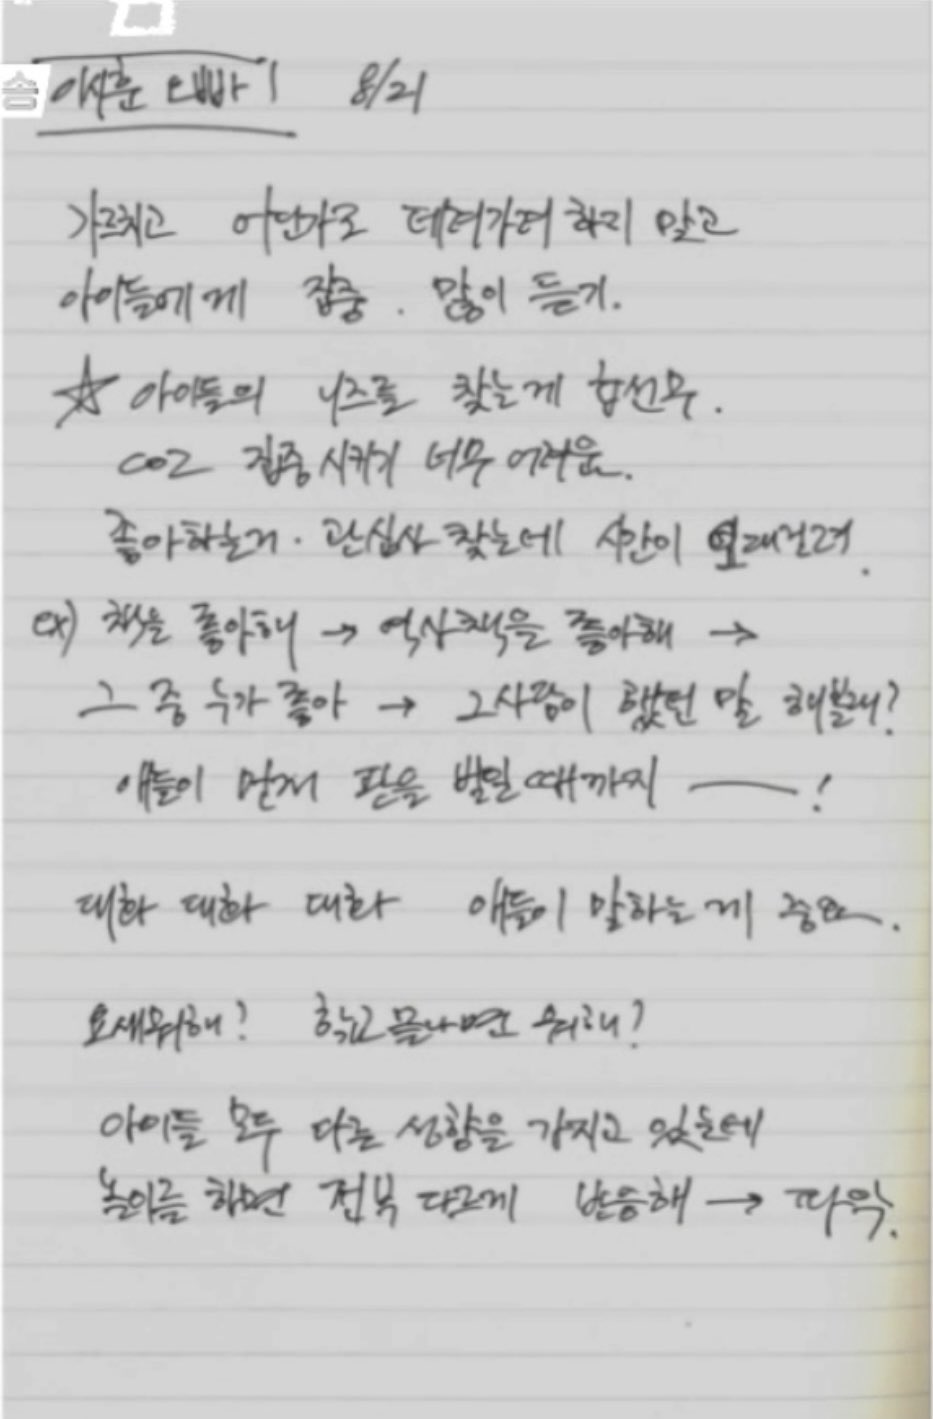 송
이사훈 오빠 1 8/21
가르치고 어딘가로 데려가려 하지 말고
아이들에게 집중. 많이 듣기.
☆ 아이들의 니즈를 찾는게 급선무.
CO2 집중시키기 너무 어려움.
좋아하는거. 관심사 찾는데 시간이 오래걸려.
ex) 책을 좋아해 → 역사책을 좋아해 →
그 중 누가 좋아 → 그사람이 했던 말 해볼래?
애들이 먼저 판을 벌릴때까지 ―!
대화 대화 대화 애들이 말하는게 중요.
요새뭐해? 학교끝나면 뭐해?
아이들 모두 다른 성향을 가지고 있는데
놀이를 하면 전부 다르게 반응해 →